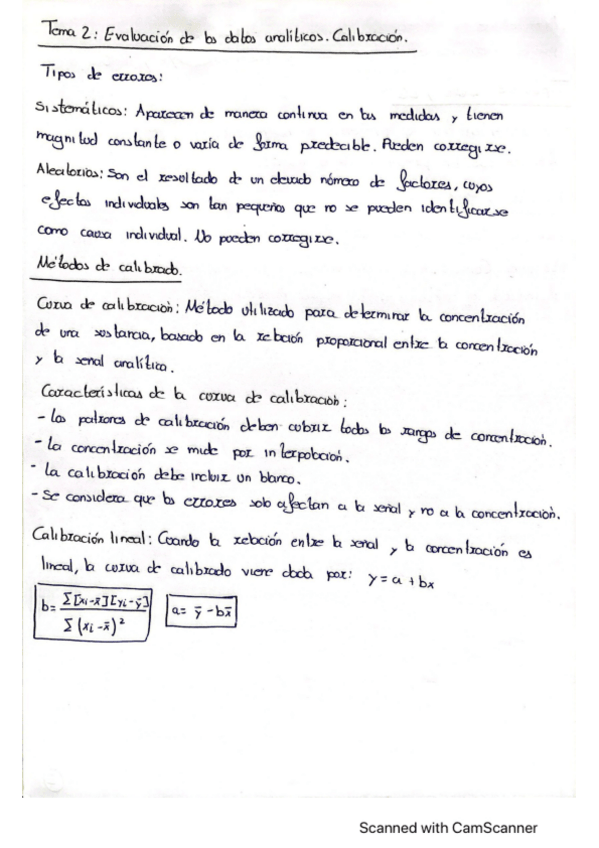 Tema 2: Evaluación de los datos analíticos. Calibración.
Tipos de errores:
Sistemáticos: Aparecen de manera continua en las medidas y tienen
magnitud constante o varía de forma predecible. Pueden corregirse.
Aleatorios: Son el resultado de un elevado número de factores, cuyos
efectos individuales son tan pequeños que no se pueden identificarse
como causa individual. No pueden corregirse.
Métodos de calibrado.
Curva de calibración: Método utilizado para determinar la concentración
de una sustancia, basado en la relación proporcional entre la concentración
y la señal analítica.
Características de la curva de calibración:
- Los patrones de calibración deben cubrir todos los rangos de concentración.
- La concentración se mide por interpolación.
- La calibración debe incluir un blanco.
- Se considera que los errores solo afectan a la señal y no a la concentración.
Calibración lineal: Cuando la relación entre la señal y la concentración es
lineal, la curva de calibrado viene dada por: y = a + bx
b = Σ[xi - x̄][yi - ȳ] / Σ(xi - x̄)² a = ȳ - bx̄
Scanned with CamScanner